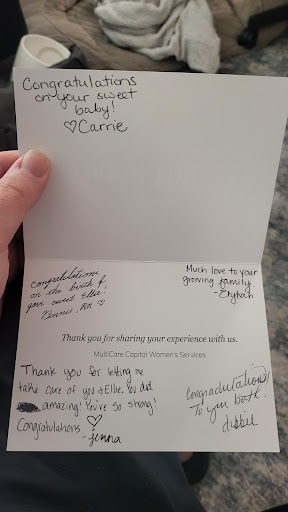 Congratulations
on your sweet
baby!
♡Carrie
Congratulations
on the birth of
your sweet Ellie!
RN ♡
Much love to your
growing family.
Thank you for sharing your experience with us.
MultiCare Capital Women's Services
Thank you for letting me
take care of you & Ellie. You did
amazing! You're so strong!
Congratulations ♡
-Jenna
Congradulations!
To you both!